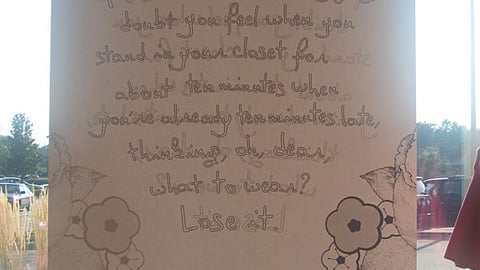 doubt you feel when you
stand in your closet for
about ten minutes when
you're already ten minutes late,
thinking, oh, dear,
what to wear?
Lose it!